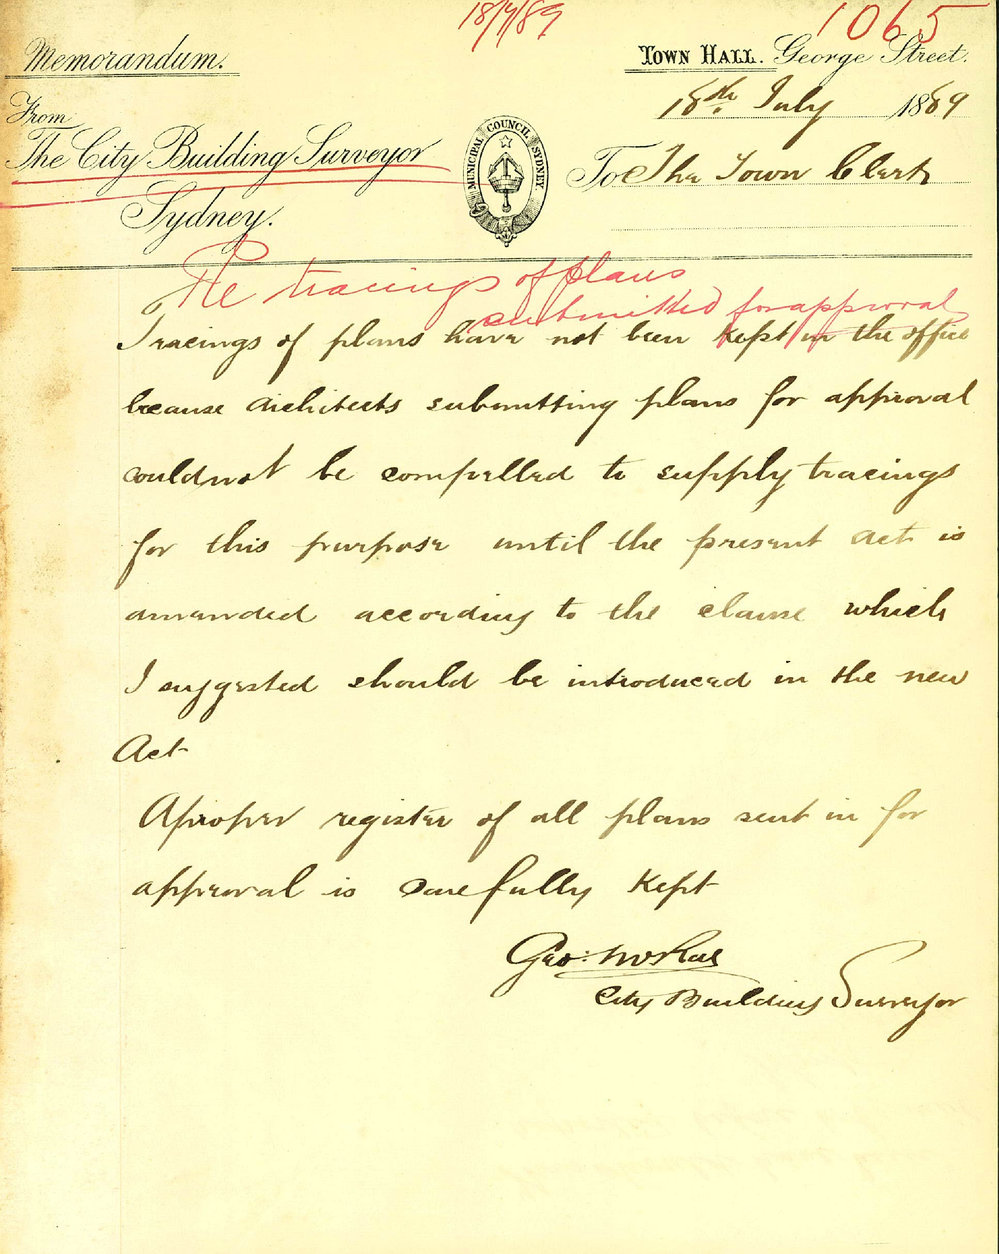 18/7/89
1065
Memorandum.
TOWN HALL. George Street.
18th July 1889
From
The City Building Surveyor
Sydney.
MUNICIPAL COUNCIL SYDNEY.
To The Town Clerk
Re tracings of plans
submitted for approval
Tracings of plans have not been kept in the office
because architects submitting plans for approval
could not be compelled to supply tracings
for this purpose until the present Act is
amended according to the clause which
I suggested should be introduced in the new
Act
A proper register of all plans sent in for
approval is carefully kept
Geo: McRae
City Building Surveyor